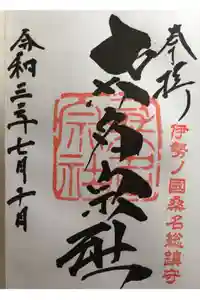 奉拝
伊勢ノ國桑名総鎮守
桑名宗社
令和三年七月十日